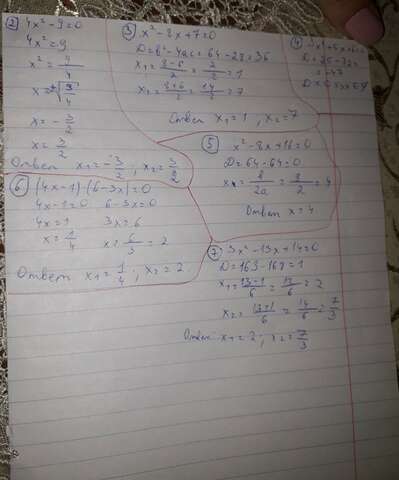 ② 4x² - 9 = 0
4x² = 9
x² =
x = ±
x = - 3/2
x = 3/2
Ответ x₁ = -3/2 ; x₂ = 3/2
③ x² - 8x + 7 = 0
D = b² - 4ac = 64 - 28 = 36
x₁ = 8-6/2 = 2/2 = 1
x₂ = 8+6/2 = 14/2 = 7
Ответ x₁ = 1 , x₂ = 7
④
⑤ x² - 8x + 16 = 0
D = 64 - 64 = 0
x = 8/2a = 8/2 = 4
Ответ x = 4
⑥ (4x-1)(6-3x) = 0
4x-1=0 6-3x=0
4x=1 3x=6
x = 1/4 x = 6/3 = 2
Ответ x₁ = 1/4 ; x₂ = 2
⑦ 3x² - 13x + 14 = 0
= 1
x₁ = 13-1/6 = = 2
x₂ = 13+1/6 = 14/6 = 7/3
Ответ x₁ = 2 ; x₂ = 7/3